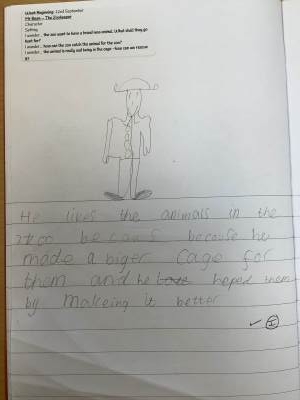 Week Beginning: 22nd September
Mr Bean – The Zookeeper
Character
Setting
I wonder... the zoo want to have a brand new animal. What shall they go
hunt for?
I wonder... how can the zoo catch the animal for the zoo?
I wonder... the animal is really sad being in the cage – how can we rescue
it?
He likes the animals in the
zoo becaus because he
made a biger cage for
them and he heped them
by makeing it better